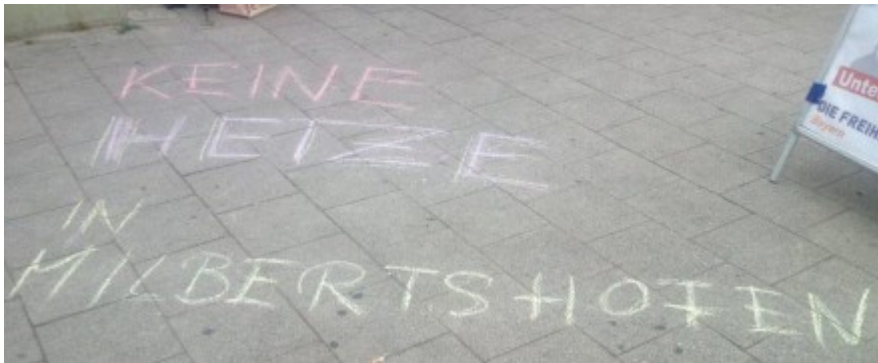 KEINE
HETZE
IN
MILBERTSHOFEN
Unte
DIE FREIH
Bayern